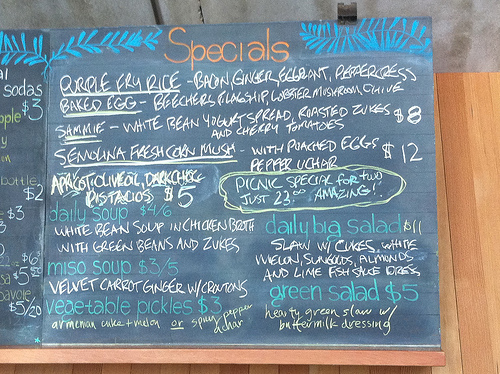 Specials
PURPLE FRY RICE - BACON, GINGER, EGGPLANT, PEPPERCRESS
BAKED EGG - BEECHER'S FLAGSHIP, LOBSTER MUSHROOM, CHIVE
SAMMIE - WHITE BEAN YOGURT SPREAD, ROASTED ZUKES $8
AND CHERRY TOMATOES
SEMOLINA FRESH CORN MUSH - WITH POACHED EGGS $12
PEPPER ACHAR
APRICOT OLIVE OIL, DARK CHOC
PISTACIOS $5
PICNIC SPECIAL FOR TWO
JUST 23.00 AMAZING!
daily soup $4/6
WHITE BEAN SOUP IN CHICKEN BROTH
WITH GREEN BEANS AND ZUKES
miso soup $3/5
VELVET CARROT GINGER W/CROUTONS
vegetable pickles $3
armenian cuke + melon or spicy pepper
achar
daily big salad $11
SLAW W/ CUKES, WHITE
MELON, SUNGOLDS, ALMONDS
AND LIME FISH SAKE DRESS
green salad $5
hearty green slaw w/
buttermilk dressing
sodas
$3
bottle
$2
$3
$6
$5
$5/20